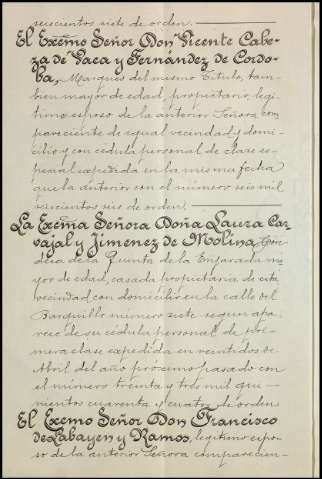 seiscientos siete de orden.
El Excmo Señor Don Vicente Cabe-
za de Vaca y Fernandez de Cordo-
ba, Marqués del mismo Titulo, tam-
bien mayor de edad, propietario, legi-
timo esposo de la anterior Señora com
pareciente de igual vecindad y domi-
cilio y con cédula personal de clase es-
pecial expedida en la misma fecha
que la anterior con el número seis mil
seiscientos seis de orden.
La Excma Señora Doña Laura Car
vajal y Jimenez de Molina, Con
desa de la Quinta de la Enjarada ma
yor de edad, casada propietaria de esta
vecindad, con domicilio en la calle del
Barquillo número siete segun apa-
rece de su cédula personal de pri-
mera clase expedida en veintidos de
Abril del año próximo pasado con
el número treinta y tres mil qui-
nientos cuarenta y cuatro de orden
El Excmo Señor Don Francisco
de Labayen y Ramos, legitimo espo-
so de la anterior Señora comparecien-